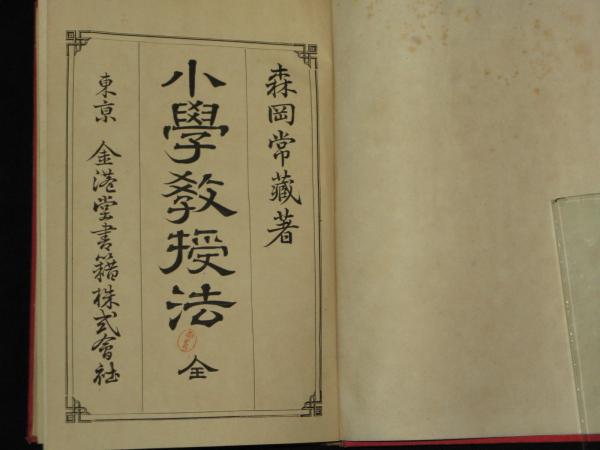 森岡常藏著
小學教授法 全
東京 金港堂書籍株式會社